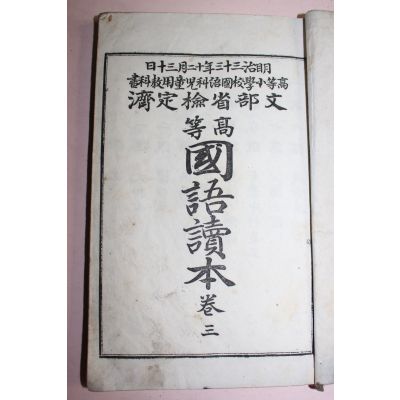 明治三十三年十二月三十日
高等小學校國語科兒童用教科書
文部省檢定濟
高等
國語讀本 卷三